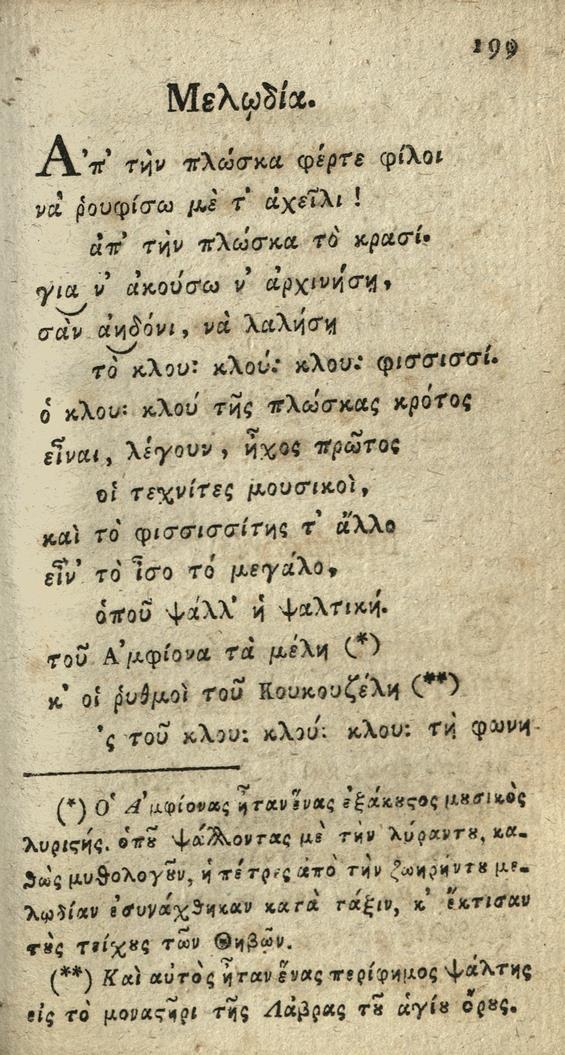 199
Μελῳδία.
Α᾿π᾿ τὴν πλώσκα φέρτε φίλοι
νὰ ῥουφίσω μὲ τ᾿ ἀχεῖλι !
ἀπ᾿ τὴν πλώσκα τὸ κρασί.
για ν᾿ ἀκούσω ν᾿ ἀρχινήσῃ,
σαν ἀηδόνι, νὰ λαλήσῃ
τὸ κλου: κλού: κλου: φισσισσί.
ὁ κλου: κλού τῆς πλώσκας κρότος
εἶναι, λέγουν, ἦχος πρῶτος
οἱ τεχνίτες μουσικοὶ,
καὶ τὸ φισσισσίτης τ᾿ ἄλλο
εἶν᾿ τὸ ἶσο τό μεγάλο,
ὁποῦ ψάλλ᾿ ἡ ψαλτική.
τοῦ Α᾿μφίονα τὰ μέλη (*)
κ᾿ οἱ ῥυθμοὶ τοῦ Κουκουζέλη (**)
᾿ς τοῦ κλου: κλού: κλου: τὴ φωνη
(*) Ο῾ Α᾿μφίονας ἦταν ἕνας ἐξάκȣςος μȣσικὸς
λυριςής. ὁπȣ͂ ψάλλοντας μὲ τὴν λύραντȣ, κα-
θὼς μυθολογȣ͂ν, ἡ πέτρες ἀπὸ τὴν ζωηρήντȣ με-
λῳδίαν ἐσυνάχθηκαν κατὰ τάξιν, κ᾿ ἔκτισαν
τȣ̀ς τείχȣς τῶν Θηβῶν.
(**) Καὶ αὐτὸς ἦταν ἕνας περίφημος ψάλτης
εἰς τὸ μοναςῆρι τῆς Λάβρας τȣ͂ ἁγίȣ ὄρȣς.